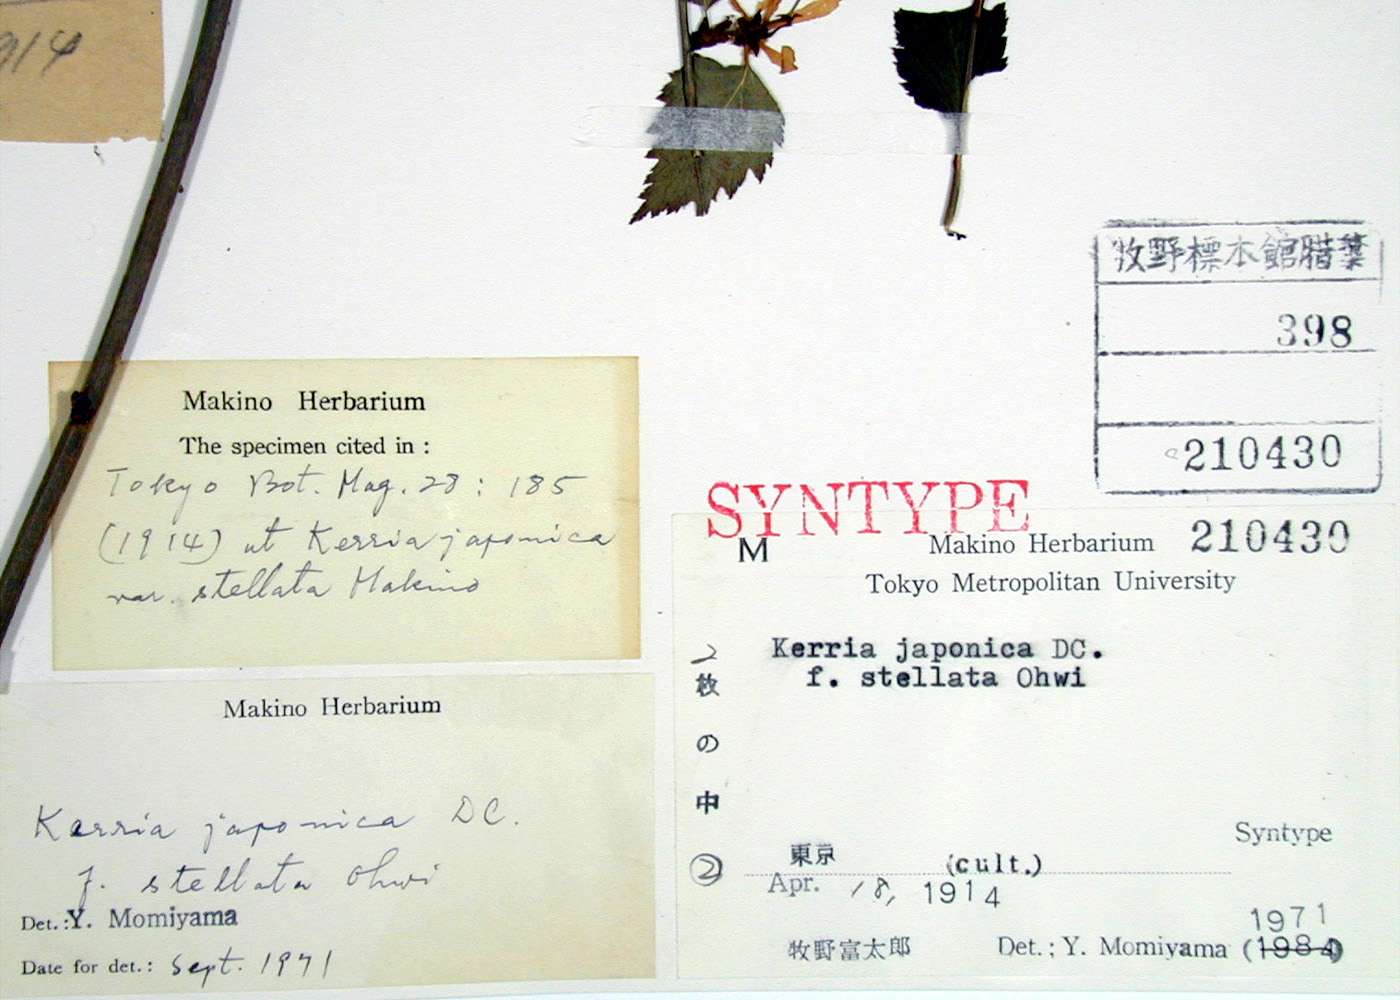 914
牧野標本館腊葉
398
210430
Makino Herbarium
The specimen cited in :
Tokyo Bot. Mag. 28 : 185
(1914) ut Kerria japonica
var. stellata Makino
Makino Herbarium
Kerria japonica DC.
f. stellata Ohwi
Det.:Y. Momiyama
Date for det.: Sept. 1971
SYNTYPE
M
Makino Herbarium 210430
Tokyo Metropolitan University
2枚の中②
Kerria japonica DC.
f. stellata Ohwi
Syntype
東京 (cult.)
Apr. 18, 1914
1971
牧野富太郎 Det.; Y. Momiyama (1984)